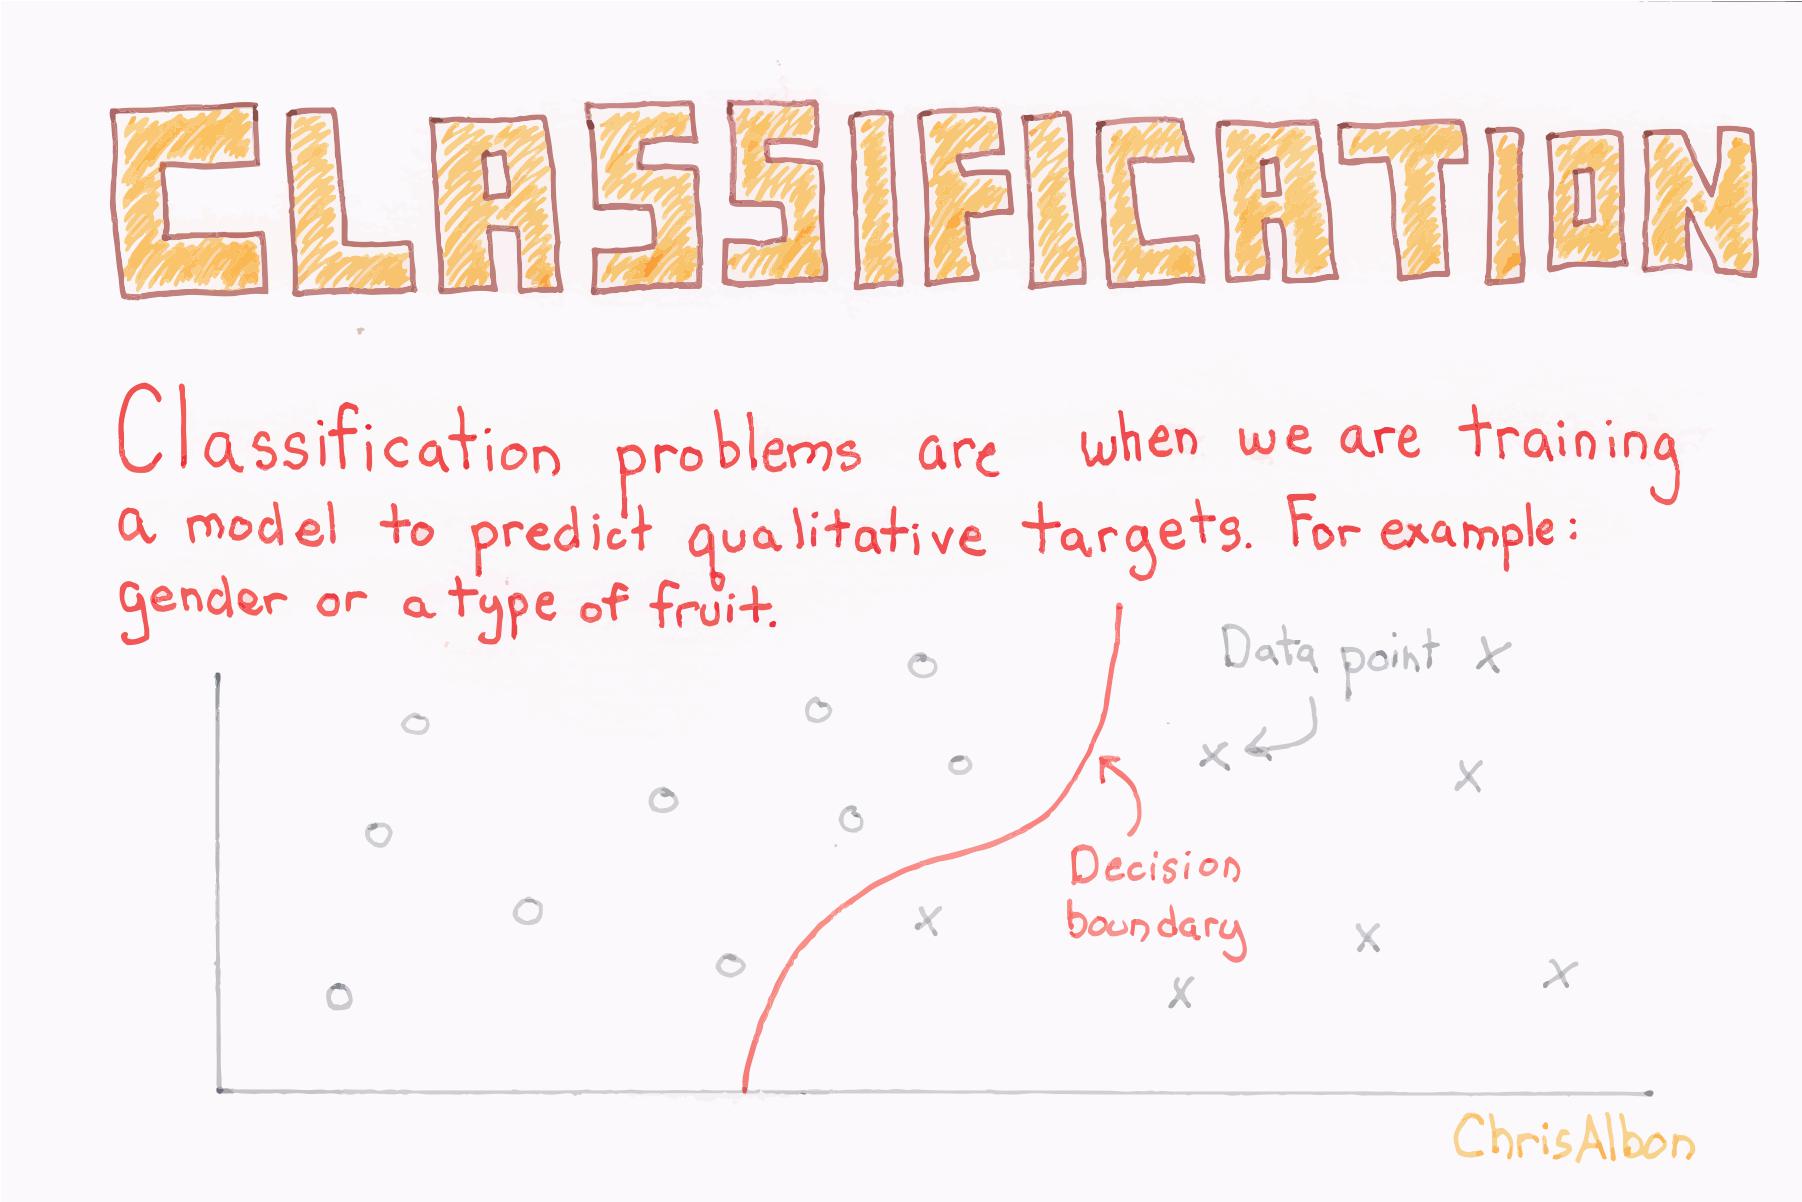 CLASSIFICATION
Classification problems are when we are training
a model to predict qualitative targets. For example:
gender or a type of fruit.
Data point
Decision
boundary
ChrisAlbon